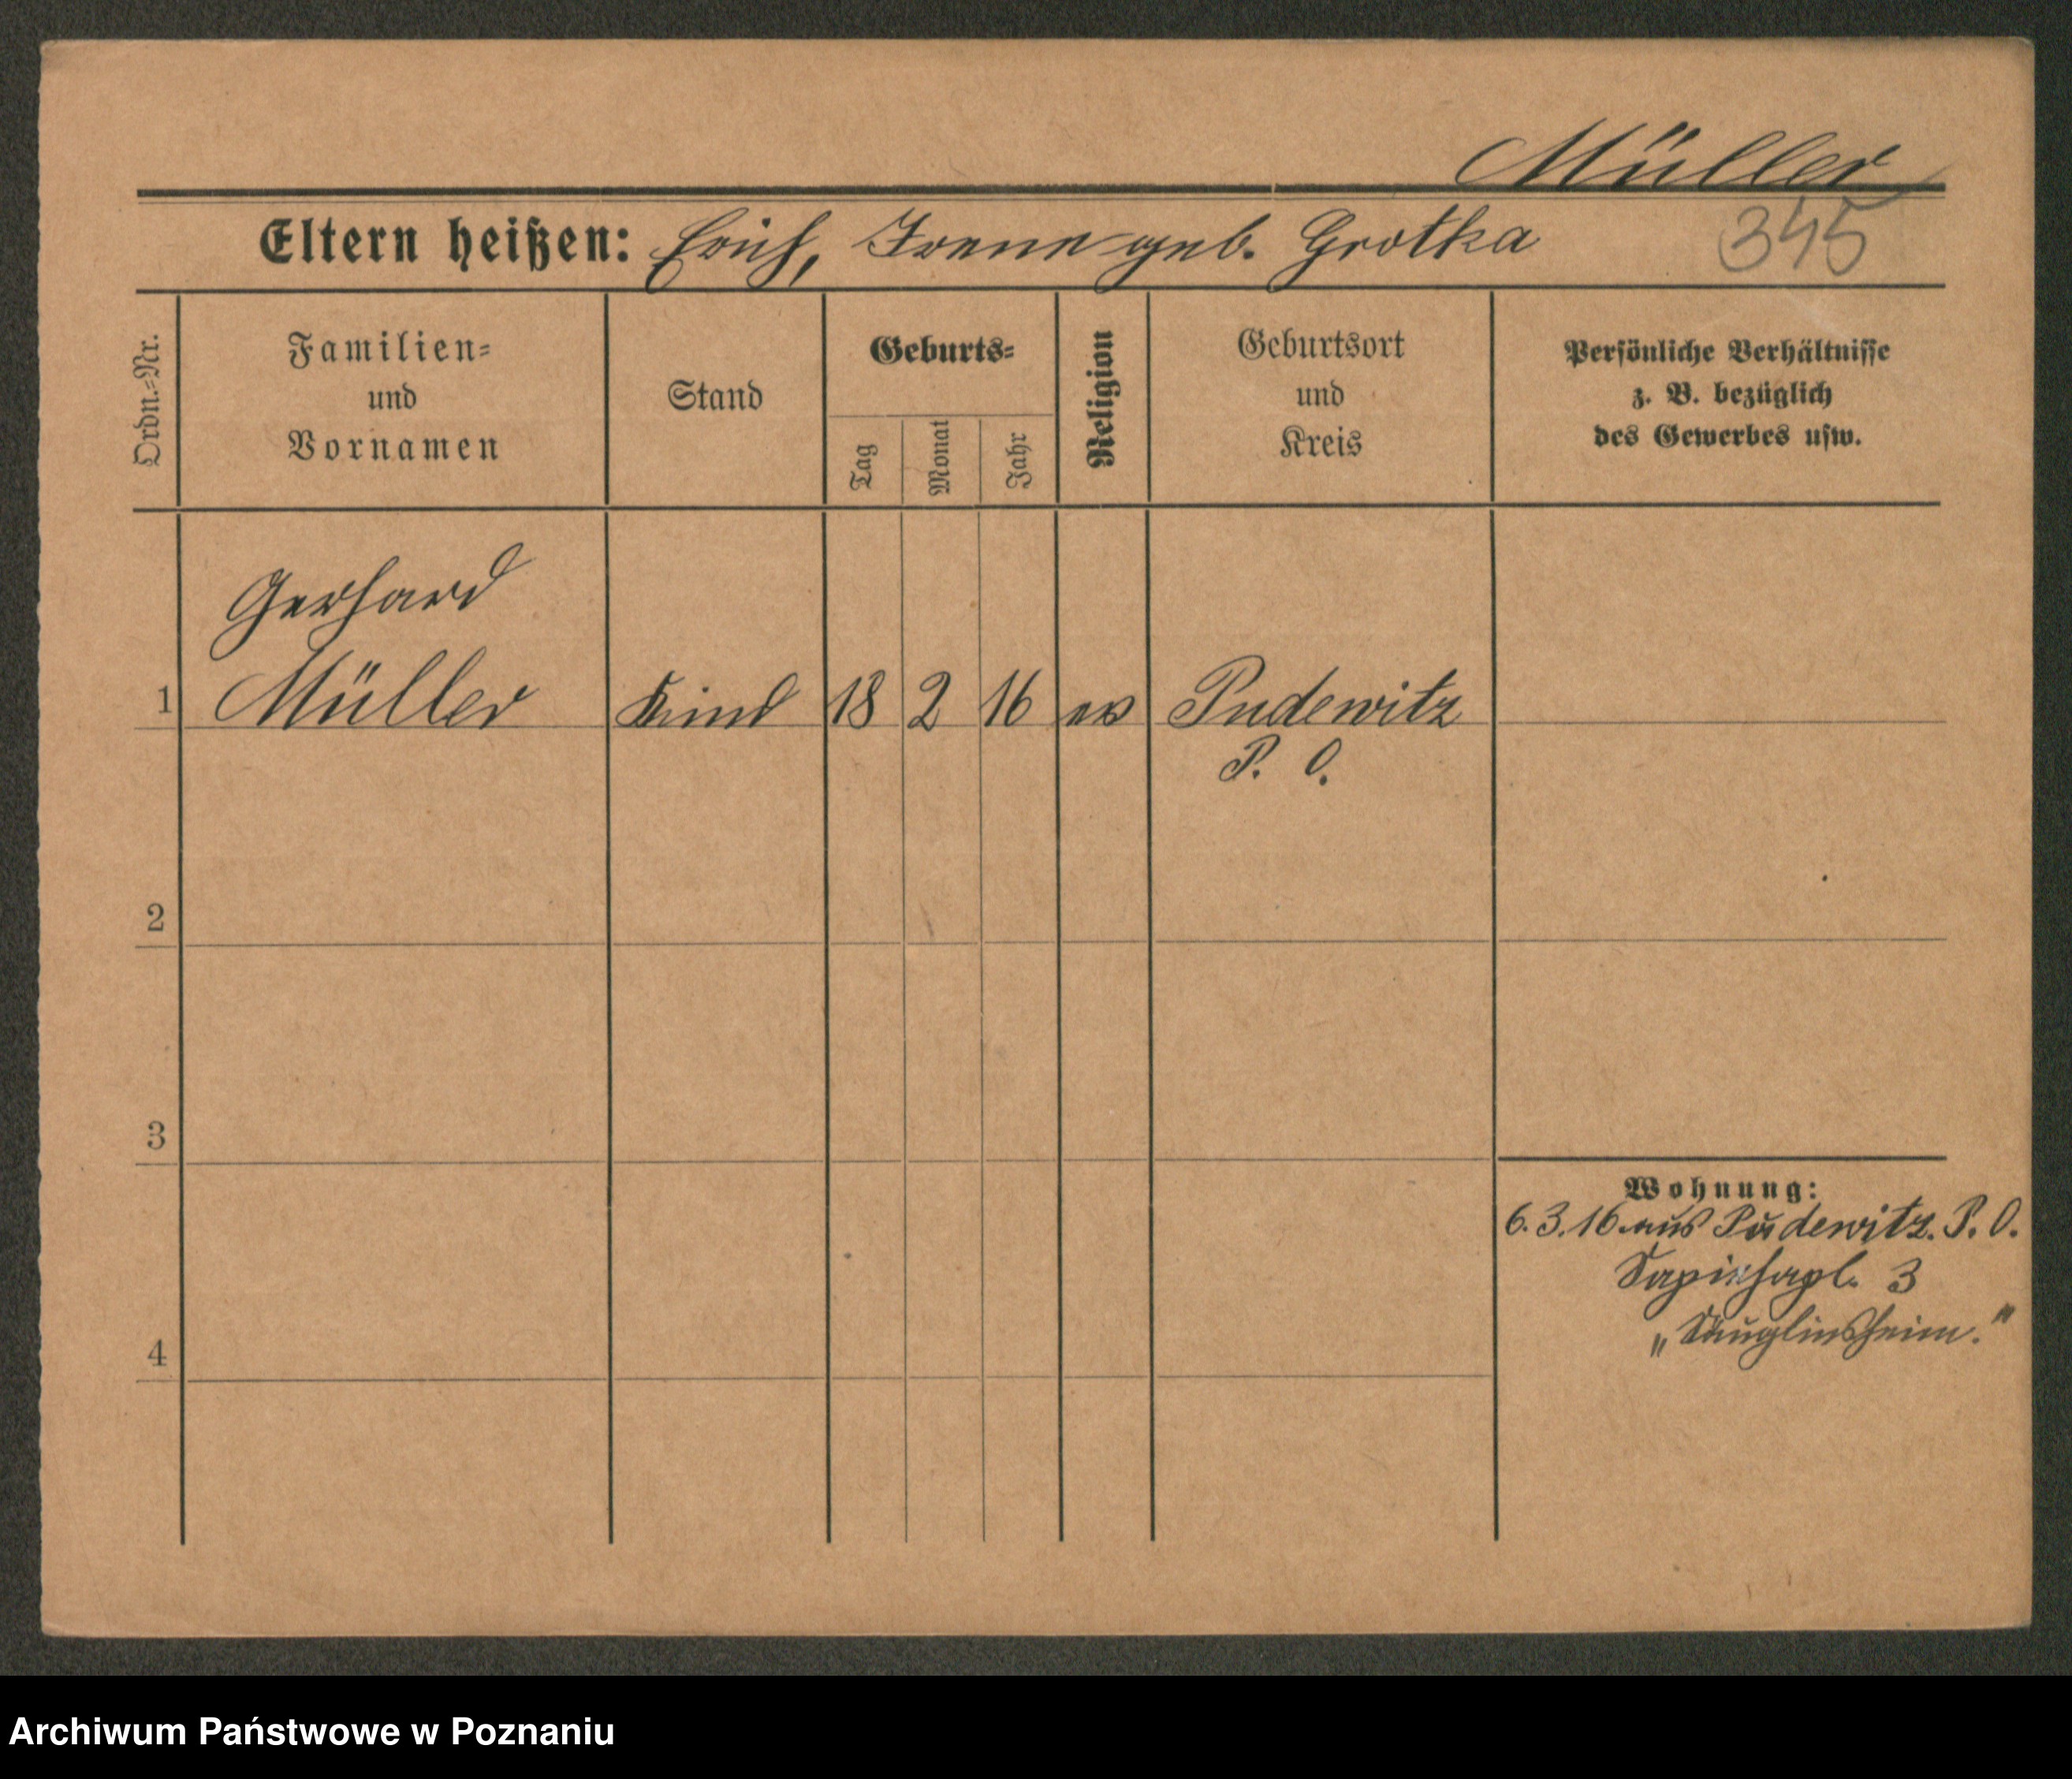 Müller
Eltern heißen: Erich, Irene geb. Grotka 345
Ordn.-Nr.
Familien-
und
Vornamen
Stand
Geburts-
Tag
Monat
Jahr
Religion
Geburtsort
und
Kreis
Persönliche Verhältnisse
z. B. bezüglich
des Gewerbes usw.
Gerhard
1 Müller Kind 18 2 16 ev Pudewitz
P. O.
2
3
Wohnung:
6.3.16 aus Pudewitz. P. O.
Sapiehapl. 3
„Säuglinsheim."
4
Archiwum Państwowe w Poznaniu